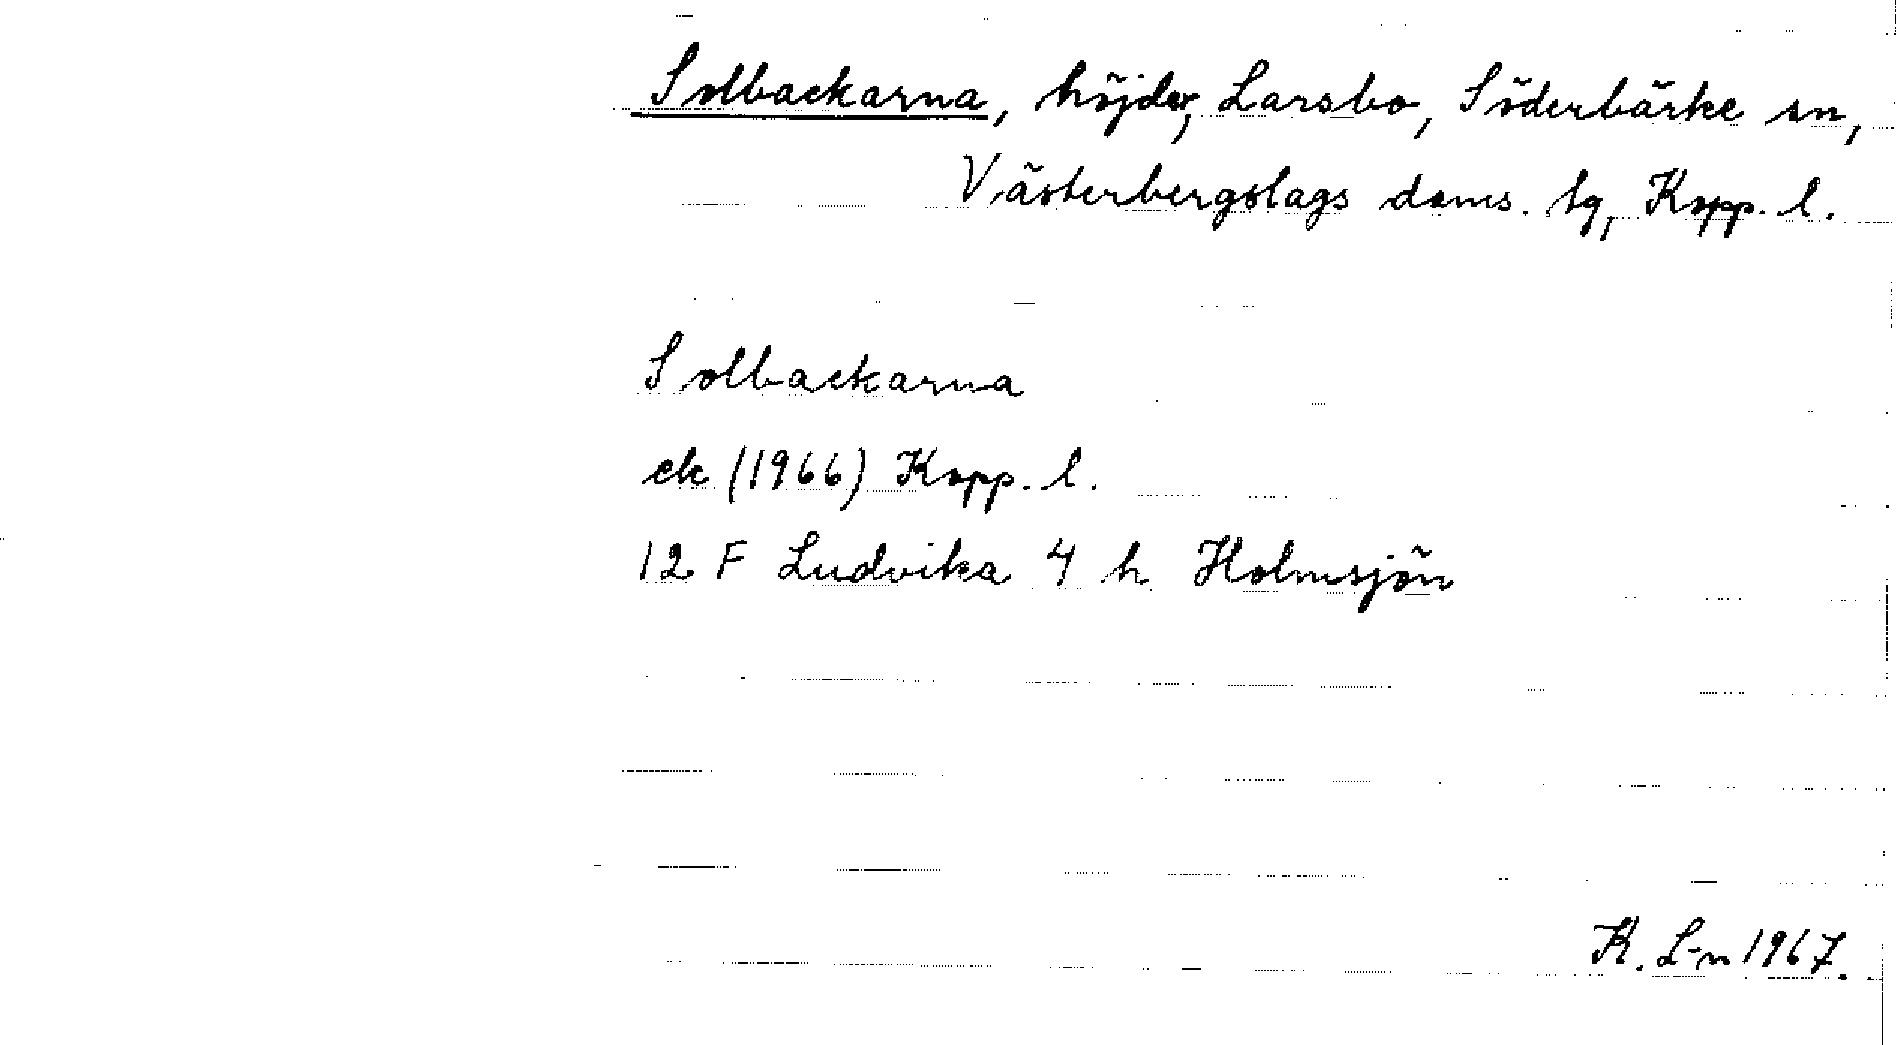 Solbackarna, höjder, Larsbo, Söderbärke sn,
Västerbergslags doms. tg, Kopp. l.
Solbackarna
ek (1966) Kopp. l.
12 F Ludvika 4 h Holmsjön
K. L-n 1967.